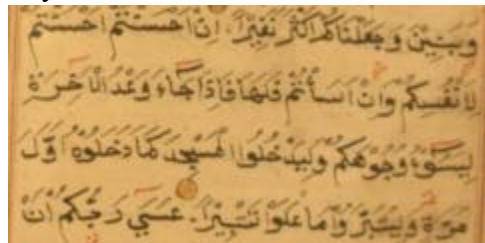 وَبَنِينَ وَجَعَلْنَاكُمْ أَكْثَرَ نَفِيرًا إِنْ أَحْسَنْتُمْ أَحْسَنْتُمْ
لِأَنْفُسِكُمْ وَإِنْ أَسَأْتُمْ فَلَهَا فَإِذَا جَاءَ وَعْدُ الْآخِرَةِ
لِيَسُوءُوا وُجُوهَكُمْ وَلِيَدْخُلُوا الْمَسْجِدَ كَمَا دَخَلُوهُ أَوَّلَ
مَرَّةٍ وَلِيُتَبِّرُوا مَا عَلَوْا تَتْبِيرًا عَسَى رَبُّكُمْ أَنْ